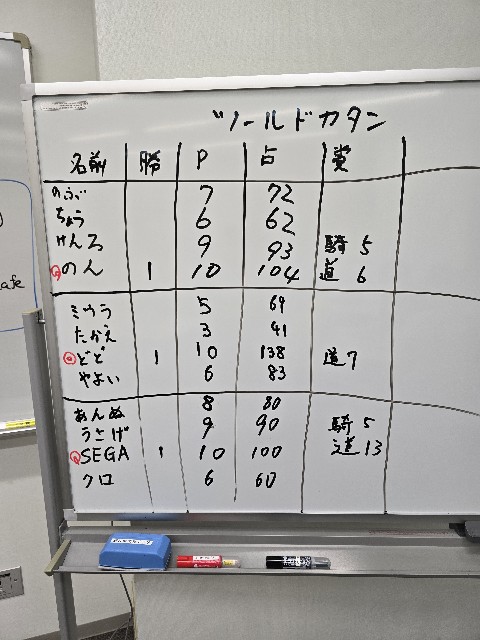 ツールドカタン
名前 勝 P 占 賞
のぶ 7 72
ちょう 6 62
けんろ 9 93 騎 5
のん 1 10 104 道 6
ミウラ 5 64
たかえ 3 41
どど 1 10 138 道 7
やよい 6 83
あんぬ 8 80
うさげ 9 90 騎 5
SEGA 1 10 100 道 13
クロ 6 60
afe